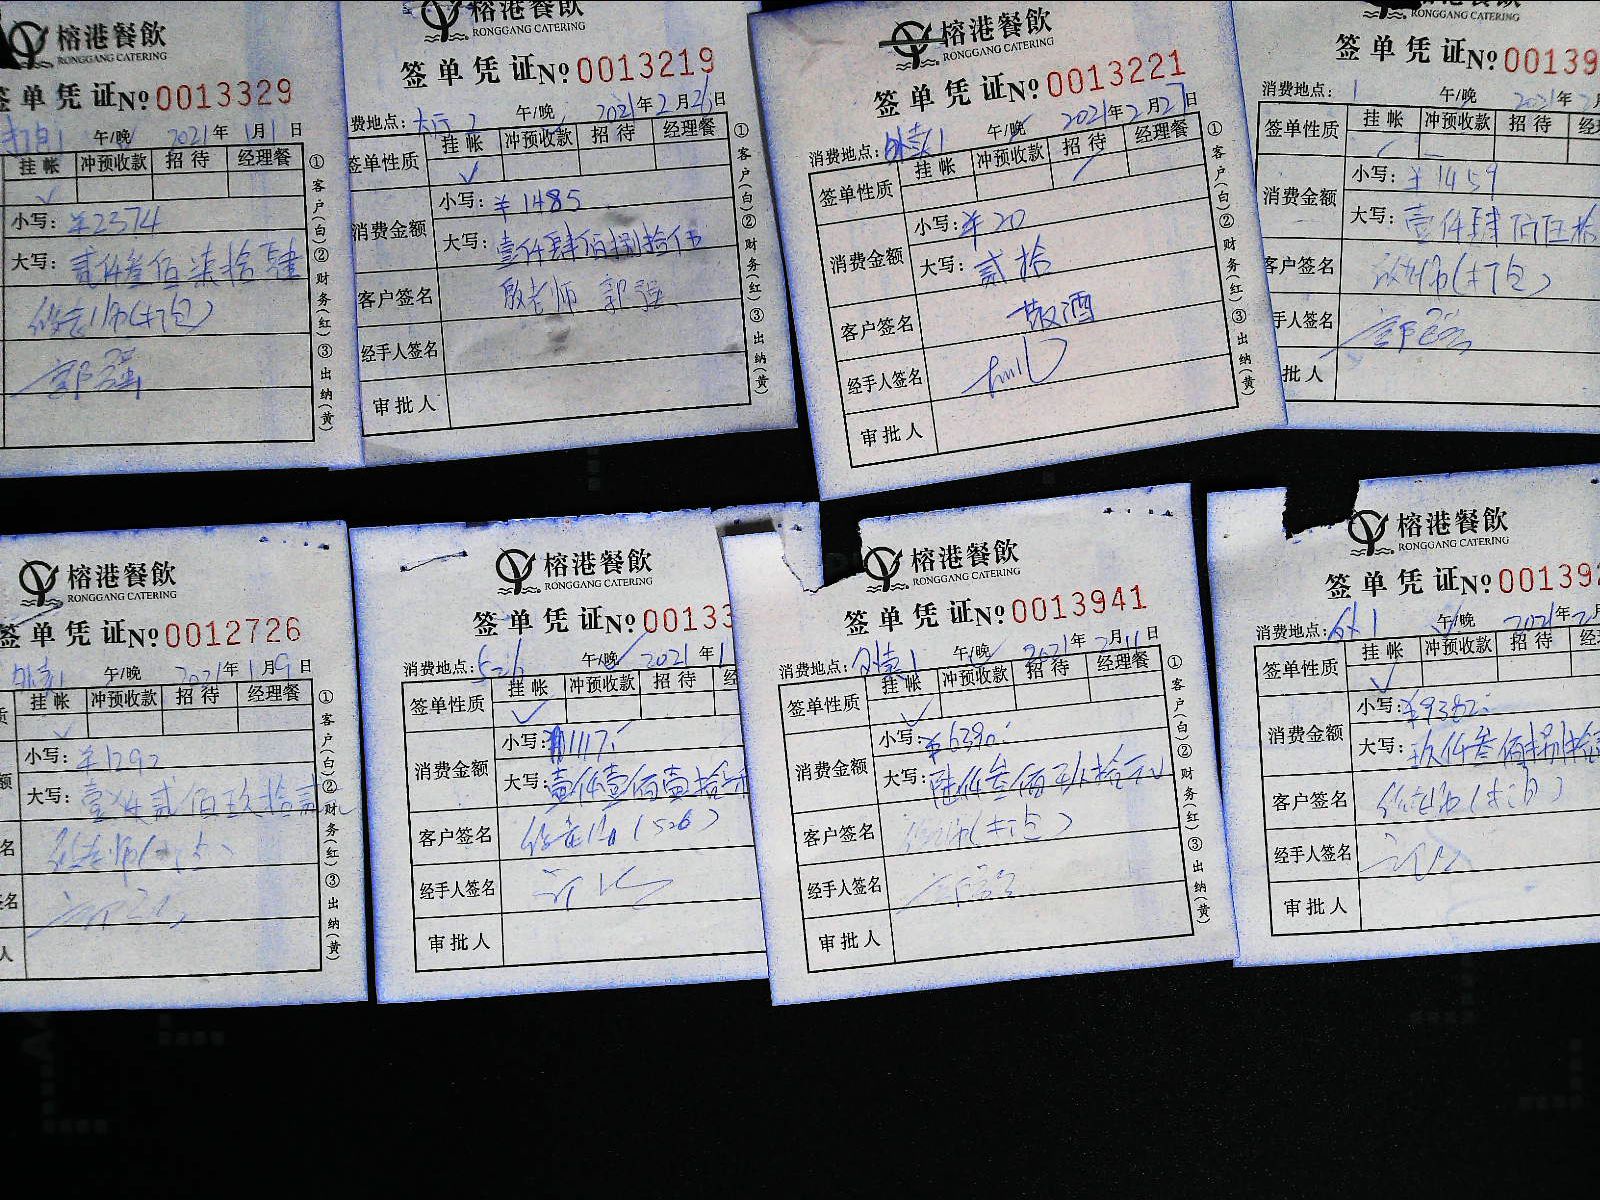 榕港餐飲
RONGGANG CATERING
签单凭证No 0013329
打包1 午/晚 2021年1月1日
挂帐 冲预收款 招待 经理餐
小写: ¥2374
大写: 贰仟叁佰柒拾肆
(打包)
郭强
①客户(白)②财务(红)③出纳(黄)
榕港餐飲
RONGGANG CATERING
签单凭证No 0013219
费地点: 大厅2 午/晚 2021年2月26日
签单性质 挂帐 冲预收款 招待 经理餐
消费金额 小写: ¥1485
大写: 壹仟肆佰捌拾伍
客户签名 殷老师 郭强
经手人签名
审批人
①客户(白)②财务(红)③出纳(黄)
榕港餐飲
RONGGANG CATERING
签单凭证No 0013221
消费地点: 外卖1 午/晚 2021年2月27日
签单性质 挂帐 冲预收款 招待 经理餐
消费金额 小写: ¥20
大写: 贰拾
客户签名 散酒
经手人签名
审批人
①客户(白)②财务(红)③出纳(黄)
RONGGANG CATERING
签单凭证No 00139
消费地点: 1 午/晚 2021年2月
签单性质 挂帐 冲预收款 招待
消费金额 小写: ¥1459
大写: 壹仟肆佰伍拾
客户签名 (打包)
手人签名 郭强
批人
榕港餐飲
RONGGANG CATERING
签单凭证No 0012726
外卖1 午/晚 2021年1月9日
挂帐 冲预收款 招待 经理餐
小写: ¥1292
大写: 壹仟贰佰玖拾贰元
名
签名
人
①客户(白)②财务(红)③出纳(黄)
榕港餐飲
RONGGANG CATERING
签单凭证No 00133
消费地点: 526 午/晚 2021年1
签单性质 挂帐 冲预收款 招待
消费金额 小写: 1117.-
大写: 壹仟壹佰壹拾柒
客户签名 (526)
经手人签名
审批人
榕港餐飲
RONGGANG CATERING
签单凭证No 0013941
消费地点: 外卖1 午/晚 2021年2月11日
签单性质 挂帐 冲预收款 招待 经理餐
消费金额 小写: ¥6390.-
大写: 陆仟叁佰玖拾元
客户签名 (打包)
经手人签名 郭强
审批人
①客户(白)②财务(红)③出纳(黄)
榕港餐飲
RONGGANG CATERING
签单凭证No 001392
消费地点: 外1 午/晚 2021年2月
签单性质 挂帐 冲预收款 招待
消费金额 小写: ¥9382.-
大写: 玖仟叁佰捌拾
客户签名 (打包)
经手人签名
审批人